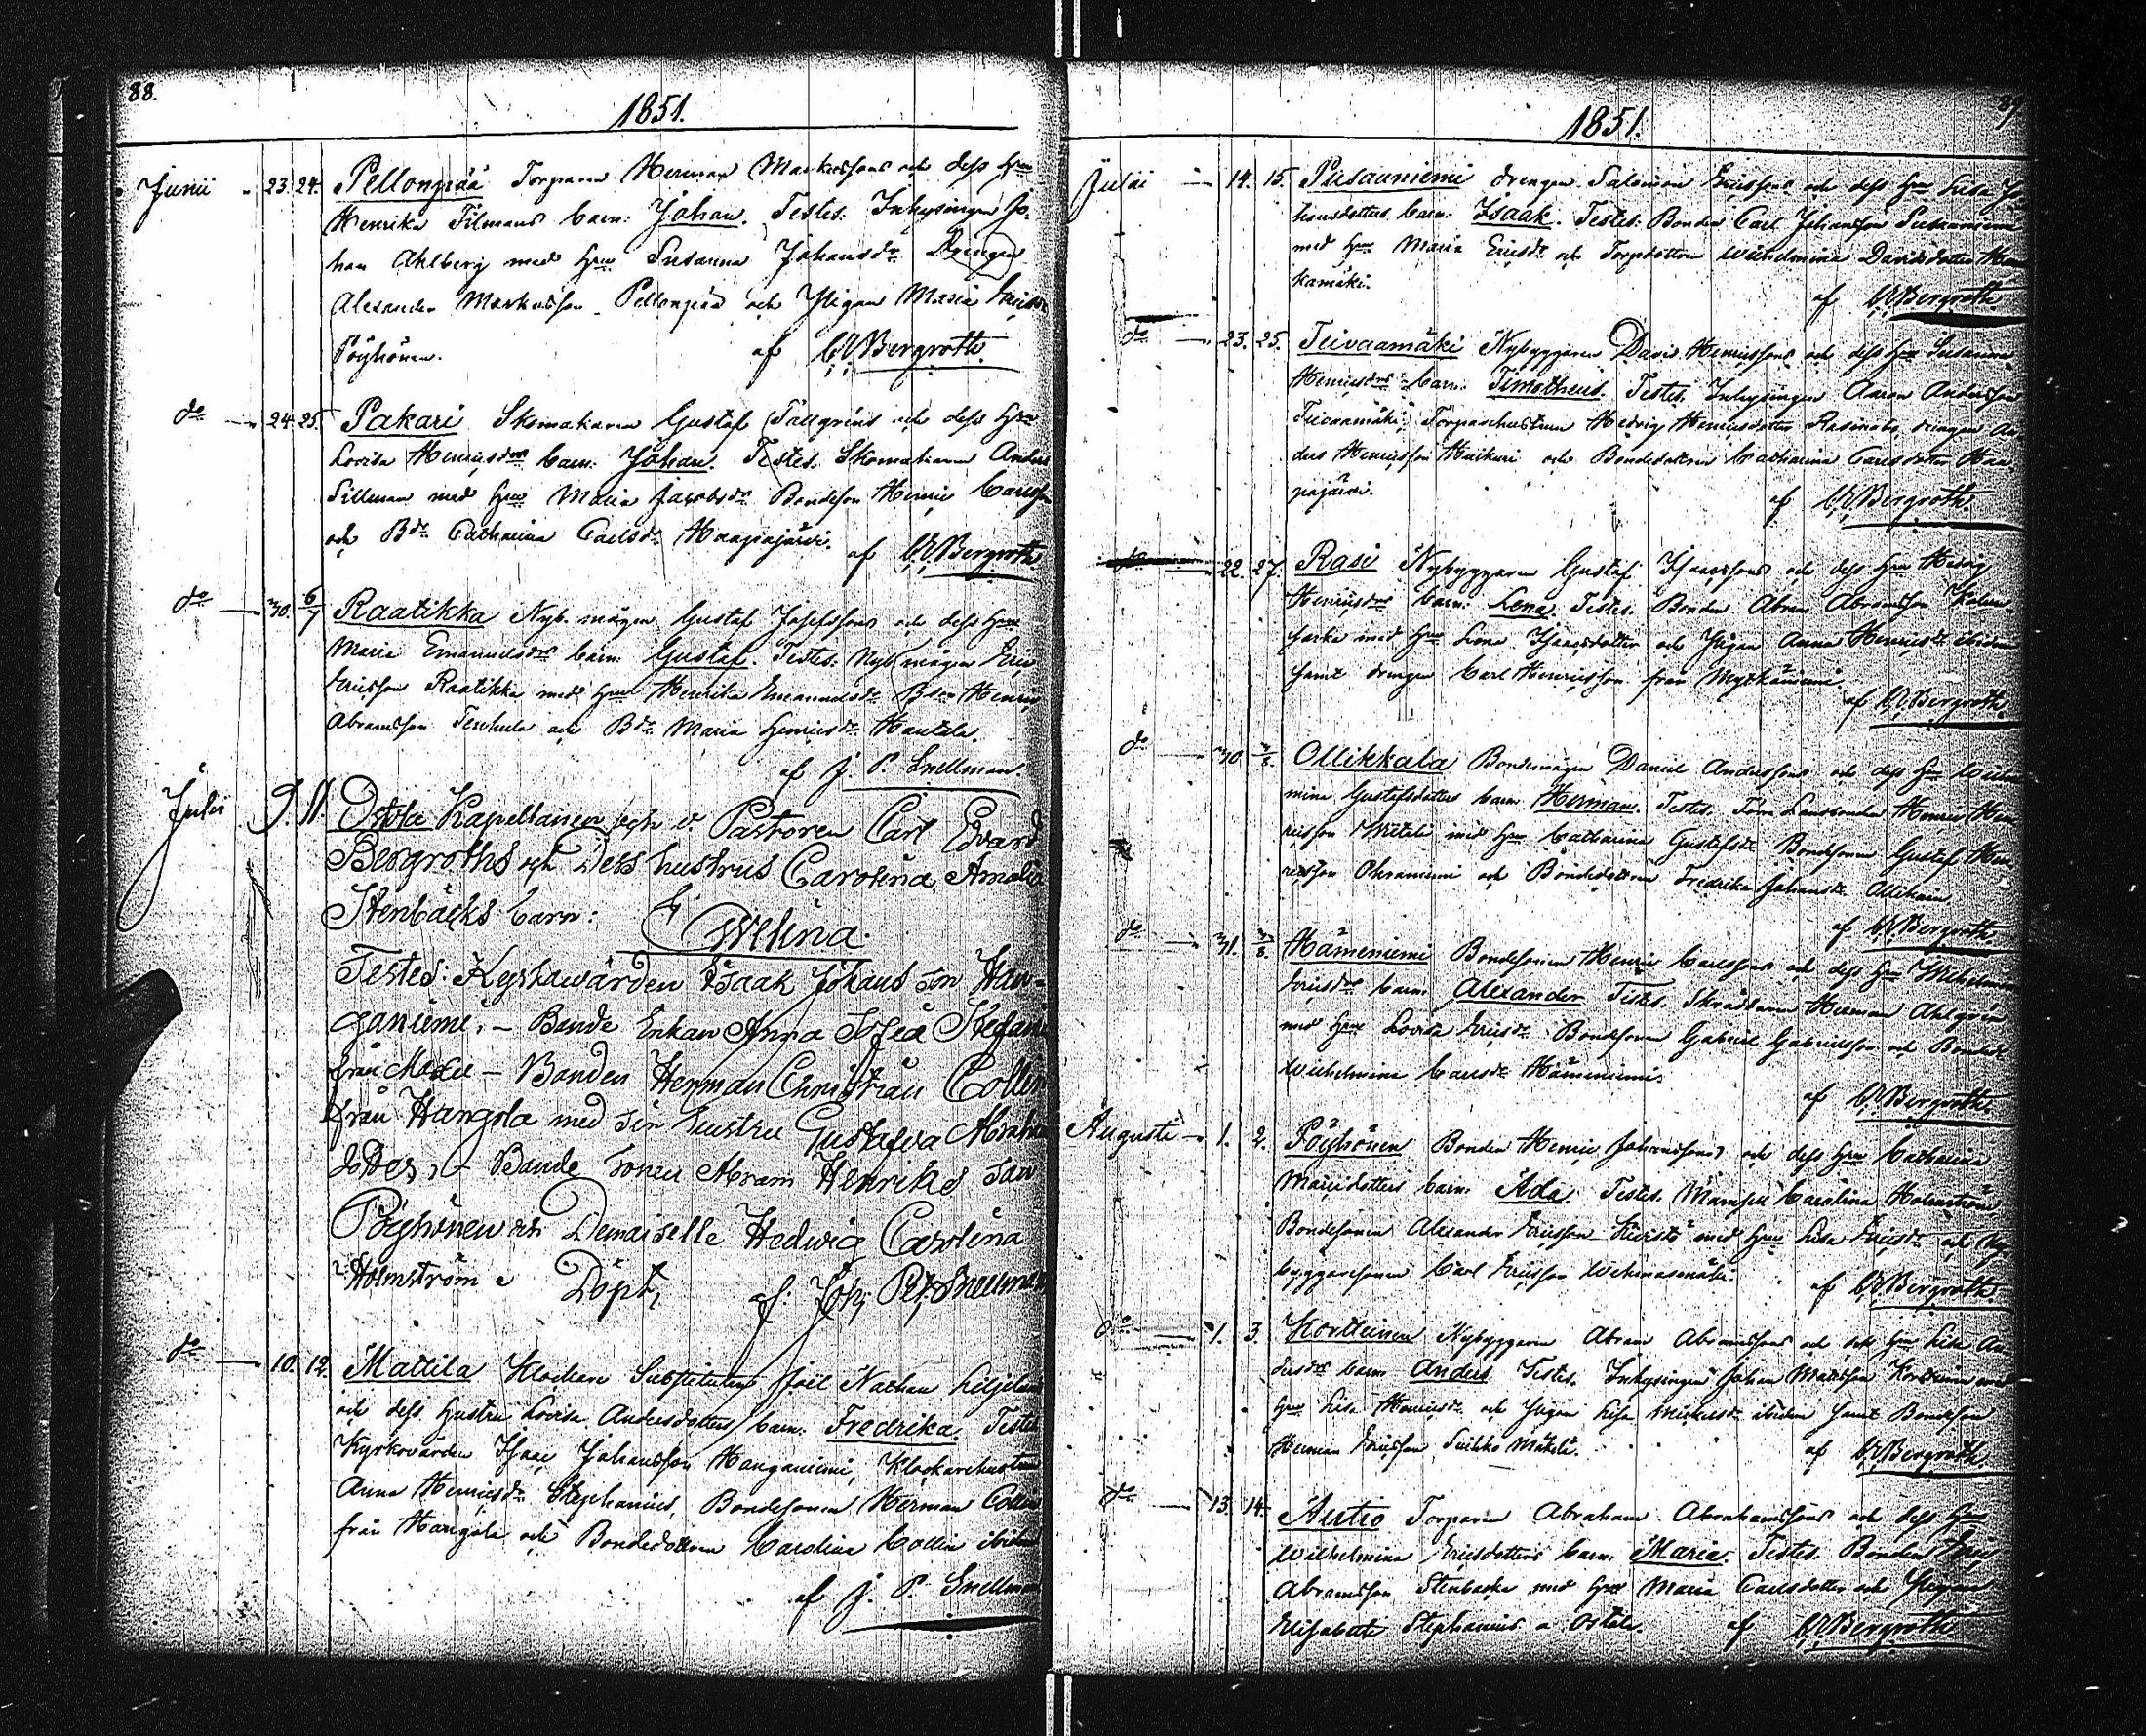 88.
1851.
Junii 23. 24. Pellonpää Torparen Herman Markussons och dess Hru
Henrika Tilmans barn: Johan. Testes: Inhysingen Jo-
han Ahlberg med Hru Susanna Johansdr Drengen
Alexander Markusson Pellonpää och Pigan Maria
Pöyhönen. af C.E. Bergroth.
do 24. 25. Pakari Skomakaren Gustaf och dess Hru
Lovisa Henricsdrs barn: Johan. Testes: Skomakaren Anders
Sillman med Hru Maria Jacobsdr Bondeson Henric Carlsson
och Bdr Catharina Carlsdr Haapajärvi. af C.E. Bergroth
do 30. 6/7 Raatikka Nyb. mågen Gustaf Josefssons och dess Hru
Maria Emanuelsdrs barn: Gustaf. Testes: Nyb mågen Eric
Ericsson Raatikka med Hru Henrika Emanuelsdr Bdn Henric
Abramsson och Bdr Maria Henricsdr Hautala.
af J. P. Snellman.
Julii 9. 11. Ostola Kapellanen och v. Pastoren Carl Edvard
Bergroths och Dess hustrus Carolina Amalia
Stenbäcks barn: Ewelina.
Testes: Kyrkawärden Isaak Johans son Han-
ganiemi, – Bonde Enkan Anna Sofia Stefani
från – Bonden Herman Christian Collin
från Hangola med sin hustru Gustafva Abrahams
doter, – Bonde sonen Abram Henriks son
Pöyhönen och Demaiselle Hedwig Carolina
Holmström Döpt, af: Joh: Pet: Snellman
do 10. 12. Mattila Klockare Substituten Joel Nathan
och dess Hustru Lovisa Andersdotters barn: Fredrika. Testes
Kyrkovärden Isaac Johansson Hanganiemi, Klockarehustrun
Anna Henricsdr Stephanius, Bondesonen Herman Collin
från Hangola och Bondedottren Karolina Collin ibidem
af J. P. Snellman
89.
1851.
Julii 14. 15. Pusaanniemi Drengen Salomon Ericssons och dess Hru Lisa Jo-
hansdotters barn: Isaak. Testes: Bonden Carl Johansson
med Hru Maria Ericsdr och Torpdottren Wilhelmina Davidsdotter
kamäki.
af C.E. Bergroth
do 23. 25. Teivaamäki Nybyggaren David Henricssons och dess Hru Susanna
Henricsdrs barn: Timotheus. Testes: Inhysingen Aaron Andersson
Teivaamäki, Torparehustrun Hedvig Henricsdotter drengen An-
ders Henricsson och Bondedottren Catharina Carlsdotter Haa-
pajärvi. af C.E. Bergroth.
do 22. 27. Rasi Nybyggaren Gustaf Isaacssons och dess Hru Hedvig
Henricsdrs barn: Lena. Testes: Bonden Abram Abramsson
med Hru Lena Isaacsdotter och Pigan Anna Henricsdr ibidem
samt drengen Carl Henricsson från
af C.E. Bergroth.
do 30. 3/8. Ollikkala Bondemågen Daniel Anderssons och dess Hru Wilhel-
mina Gustafsdotters barn: Herman. Testes: Henric Hen-
ricsson med Hru Catharina Gustafsdr Bondesonen Gustaf Hen-
ricsson och Bondedottren Fredrika Johansdr
af C.E. Bergroth.
do 31. 3/8. Hämeniemi Bondesonen Henric Carlssons och dess Hru Wilhelmina
Ericsdrs barn: Alexander Testes: Skräddaren Herman Ahlgren
med Hru Lovisa Ericsdr Bondesonen Gabriel Gabrielsson och Bondedr
Wilhelmina Carlsdr Hämeniemi.
af C.E. Bergroth
Augusti 1. 2. Pöyhönen Bonden Henric Johanssons och dess Hru Catharina
Mattsdotters barn: Ada. Testes: Mamsell Carolina Holmström
Bondesonen Alexander Ericsson med Hru Lisa Ericsdr och Ny-
byggaresonen Carl Ericsson af C.E. Bergroth.
do 1. 3. Kortteinen Nybyggaren Abram Abramssons och dess Hru Lisa An-
dersdrs barn: Anders Testes: Inhysingen Johan Mattsson Kortteinen med
Hru Lisa Henricsdr och Pigan Lisa Mickelsdr ibidem samt Bondeson
Herman Ericsson af C.E. Bergroth
do 13. 14. Autio Torparen Abraham Abrahamssons och dess Hru
Wilhelmina Ericsdotters barn: Maria. Testes: Bonden Eric
Abramsson Stenbacka med Hru Maria Carlsdotter och Pigan
Elisabeth Stephanius a Ostola. af C.E. Bergroth